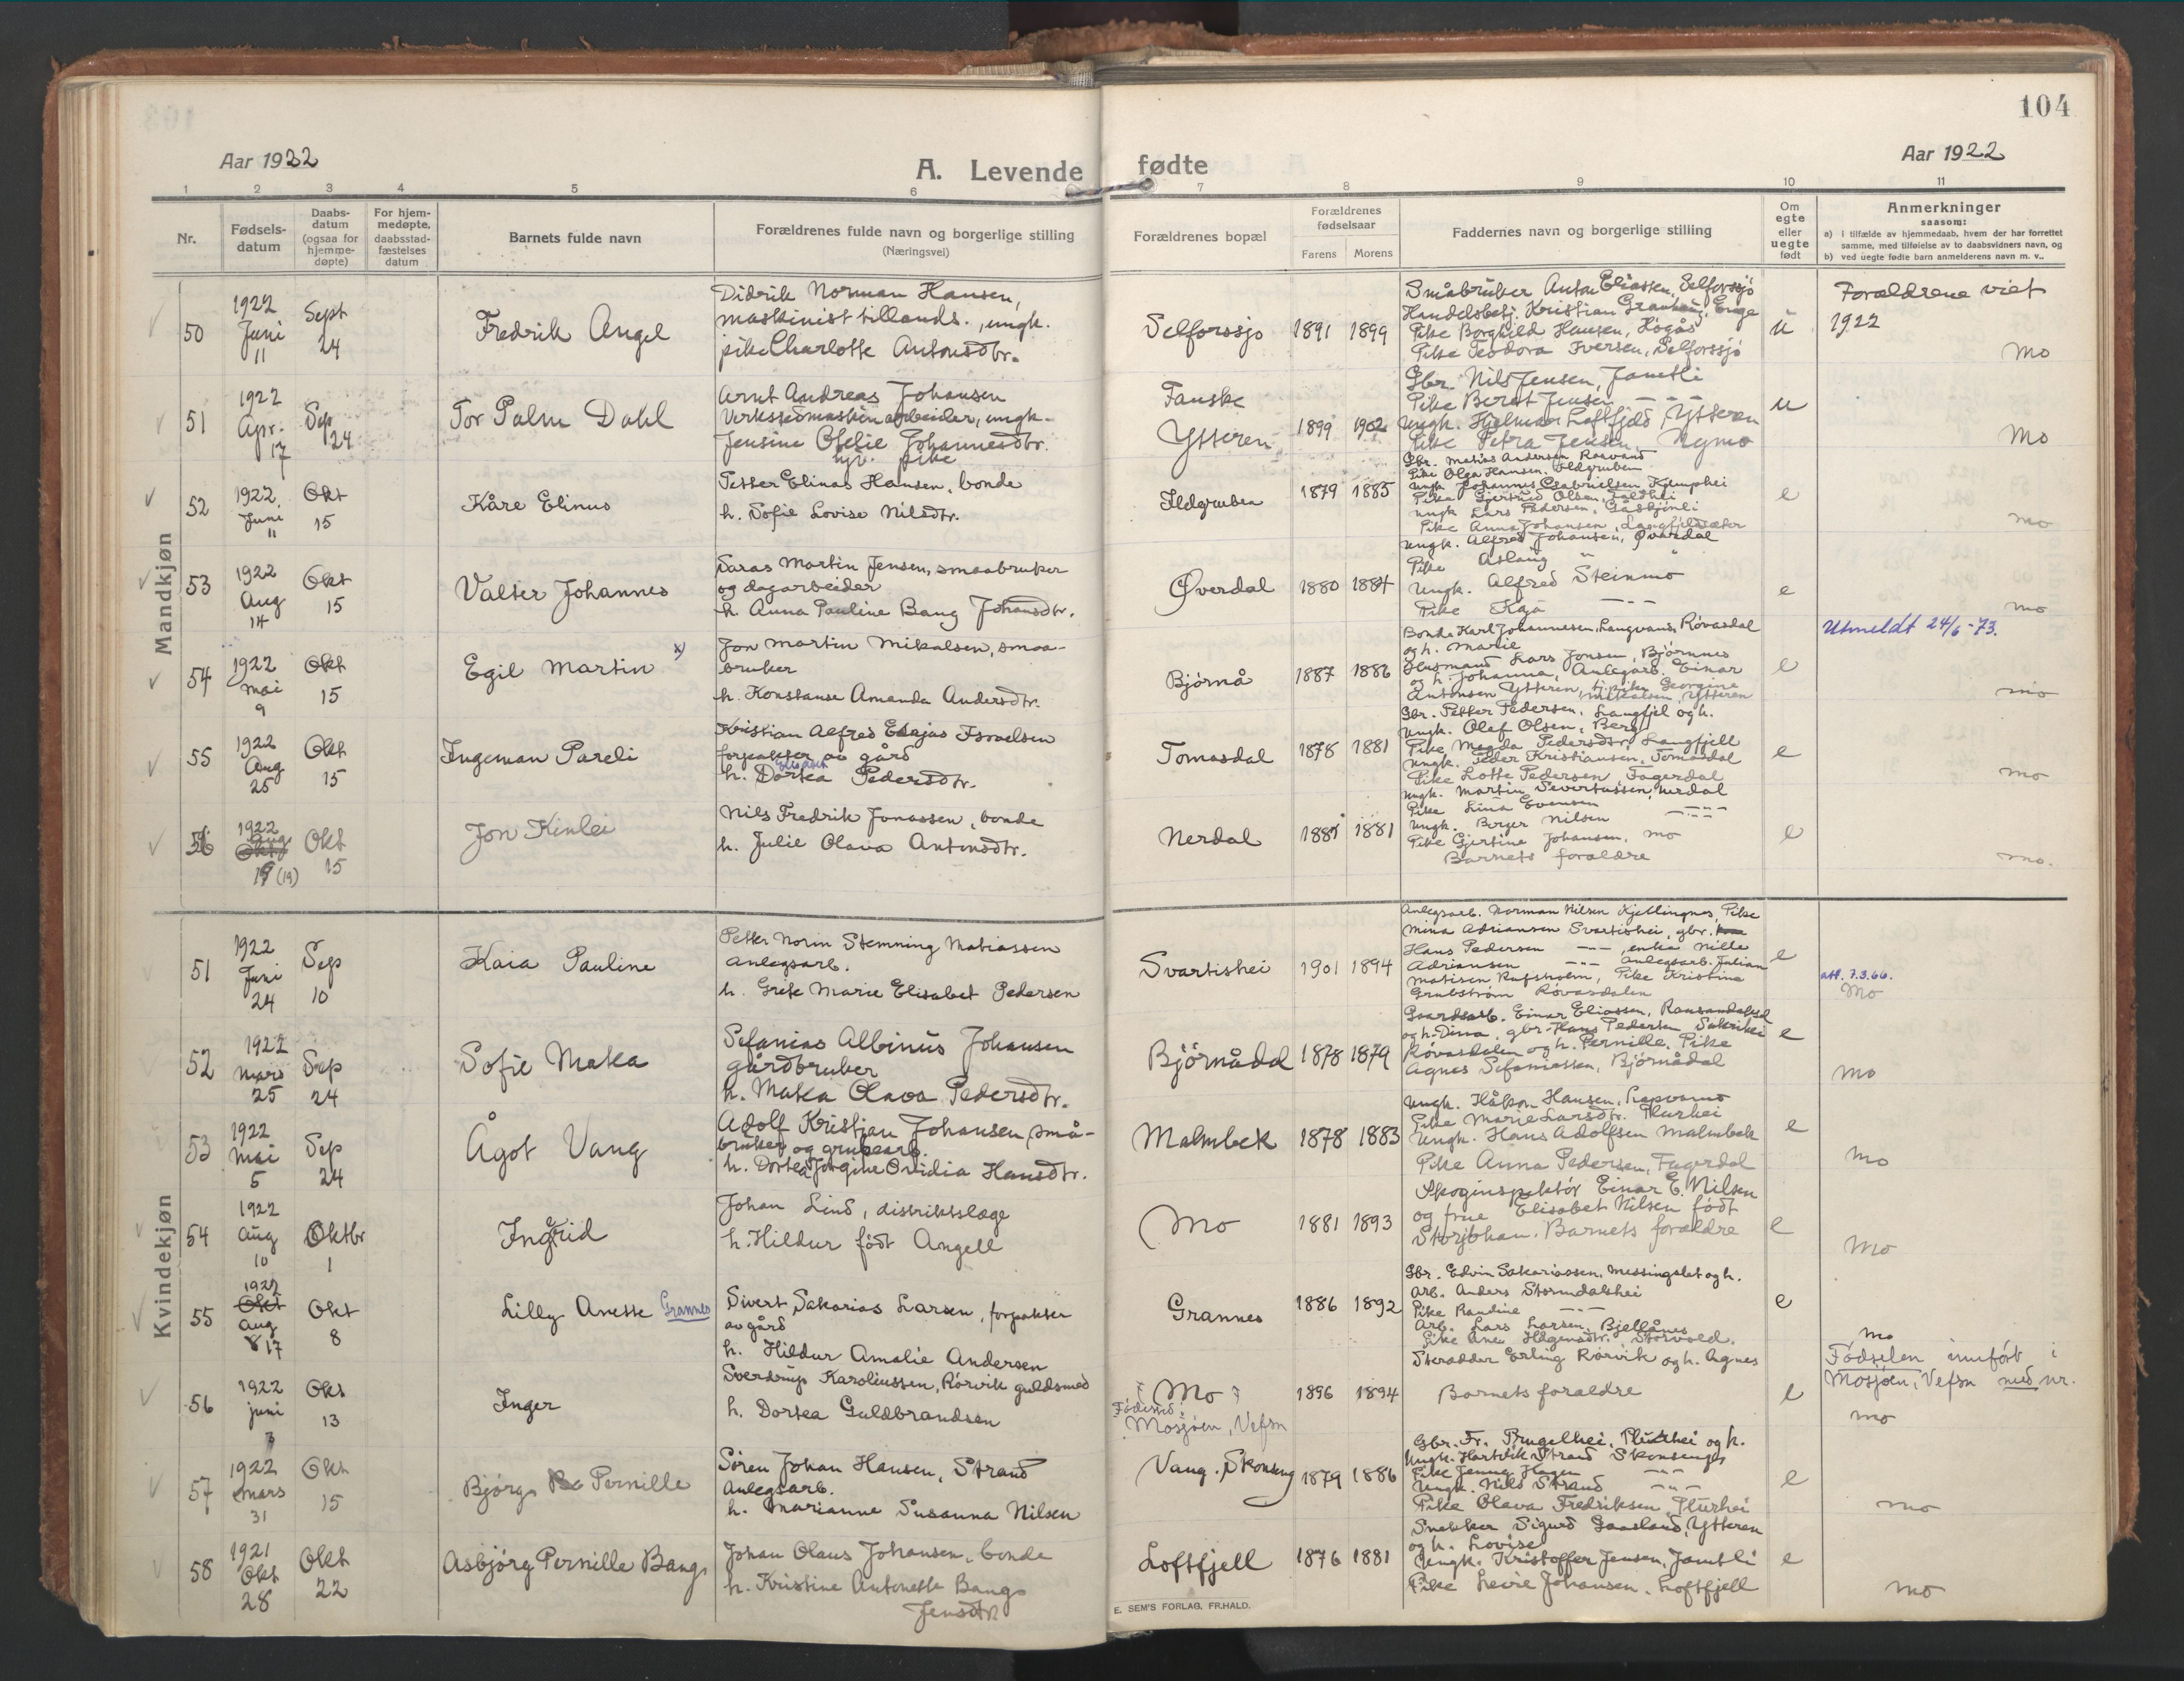 104
Aar 1922
A. Levende fødte
Aar 1922
1 2 3 4 5 6 7 8 9 10 11
Nr.
Fødsels-
datum
Daabs-
datum
(ogsaa for
hjemme-
døpte)
For hjem-
medøpte,
daabsstad-
fæstelses
datum
Barnets fulde navn
Forældrenes fulde navn og borgerlige stilling
(Næringsvei)
Forældrenes bopæl
Forældrenes
fødselsaar
Farens Morens
Faddernes navn og borgerlige stilling
Om
egte
eller
uegte
født
Anmerkninger
saasom:
a) i tilfælde av hjemmedaab, hvem der har forrettet
samme, med tilføielse av to daabsvidners navn, og
b) ved uegte fødte barn anmelderens navn m. v..
Mandkjøn
50
1922
Juni
11
Sept
24
Fredrik Angel
Didrik Norman Hansen,
maskinist tillands., ungk.
pike Charlotte Antonsdtr.
Selforssjo
1891 1899
Småbruker Anton Eliassen, Selforssjo
Handelsbetj. Kristian Granheig, Enge
Pike Borghild Hansen, Høgås
Pike Teodora Iversen, Selforssjo
u
Forældrene viet
1922
Mo
51
1922
Apr.
17
Sep
24
Tor Palm Dahl
Arnt Andreas Johansen
Verkstedmaskinarbeider, ungk.
Jensine Ofelie Johannesdtr.
pike
Fauske
Ytteren
1899 1902
Gbr. Nils Jensen, Jamtli
Pike Berat Jensen -"-
Ungk. Hjelmar Loftfjeld Ytteren
Pike Petra Jensen, Nymo
u
Mo
52
1922
Juni
11
Okt
15
Kåre Elinus
Petter Elinas Hansen, bonde
h. Sofie Lovise Nilsdtr.
Ildgruben
1879 1885
Gbr. Matias Andersen Raavand
Pike Olga Hansen, Ildgruben
Ungk Johannes Gabrielsen Kamphei
Pike Gjertrud Olsen,
Ungk Lars Pedersen,
Pike Anna Johansen, Langfjeldsæter
e
mo
53
1922
Aug
14
Okt
15
Valter Johannes
Saras Martin Jensen, smaabruker
og dagarbeider
h. Anna Pauline Bang Johansdtr.
Øverdal
1880 1884
Ungk. Alfred Johansen, Øverdal
Pike Aslaug " "
Ungk. Alfred Steinmo
Pike Kaja -"-
e
mo
54
1922
mai
9
Okt
15
Egil Martin x)
Jon Martin Mikalsen, smaa-
bruker
h. Konstanse Amanda Andersdtr.
Bjørnå
1887 1886
Bonde Karl Johannesen, Langvans, Røvasdal
og h. Marie
Husmand Lars Jonsen, Bjørnnes
og h. Johanna, Anlegsarb. Einar
Antonsen Ytteren, pike Georgine
Mikalsen, Ytteren
e
Utmeldt 24/6-73.
mo
55
1922
Aug
25
Okt
15
Ingeman Pareli
Kristian Alfred Elajas Israelsen
forpakter av gård
h. Dortea Elisabet Pedersdtr.
Tomasdal
1878 1881
Gbr. Petter Pedersen, Langfjel og h.
Ungk. Olaf Olsen, Berg
Pike Magda Pedersdtr, Langfjell
Ungk. Peder Kristiansen, Tomasdal
Pike Lotte Pedersen, Fagerdal
e
mo
56
1922
Aug
19 (19)
Okt
15
Jon Kinlei
Nils Fredrik Jonassen, bonde
h. Julie Olava Antonsdtr.
Nerdal
1885 1881
Ungk. Martin Severtussen, Nerdal
Pike Lina Evensen -"-
Ungk. Berger Nilsen -"-
Pike Gjertine Johansen, Mo
Barnets forældre
e
mo.
Kvindekjøn
51
1922
Juni
24
Sep
10
Kaia Pauline
Petter Norin Stemning Matiassen
Anlegsarb.
h. Grete Marie Elisabet Pedersen
Svartishei
1901 1894
Anlegsarb. Norman Nilsen Kjellingnes, Pike
Mina Adriansen Svartishei, gbr.
Hans Pedersen -"-, enke Nille
Adriansen -"- Anlegsarb. Julian
Matisen, Rufsholm, Pike Kristina
Grubstrøm Røvasdalen
e
att. 7.3.66.
Mo
52
1922
Mars
25
Sep
24
Sofie Maka
Sefanias Albinus Johansen
gårdbruker
h. Maka Olava Pedersdtr.
Bjørnådal
1878 1879
Gaardsarb. Einar Eliassen,
og h. Dina, gbr. Hans Pedersen
Røvasdalen og h. Pernille. Pike
Agnes Sefaniassen, Bjørnådal
e
mo
53
1922
Mai
5
Sep
24
Ågot Vang
Adolf Kristjan Johansen, små-
bruker og grubearb.
h. Dortea Jorgine Ovidia Hansdtr.
Malmbek
1878 1883
Ungk. Håkon Hansen, Lapvanno
Pike Marie Larsdtr. Plurhei
Ungk. Hans Adolfsen Malmbek
Pike Anna Pedersen, Fagerdal
e
mo
54
1922
Aug
10
Oktbr
1
Ingrid
Johan Lind, distriktslæge
h. Hildur født Angell
Mo
1881 1893
Skoginspektør Einar E. Nilsen
og frue Elisabet Nilsen født
Storjohan. Barnets forældre
e
Mo
55
1922
Okt
Aug
8 17
Okt
8
Lilly Anette Grannes
Sivert Sakarias Larsen, forpakter
av gård
h. Hildur Amalie Andersen
Grannes
1886 1892
Gbr. Edvin Sakariassen, Messingslet og h.
Arb. Anders Stormdalshei
Pike Randine -"-
Arb. Lars Larsen, Bjellånes
Pike Ane Hågensdtr. Storvold.
e
mo
56
1922
juni
3
Okt
13
Inger
Sverdrup Karoliussen, Rørvik guldsmed
h. Dortea Guldbrandsen
Mo
Fødested:
Mosjøen, Vefsn
1896 1894
Skrædder Erling Rørvik og h. Agnes
Barnets forældre
e
Fødselen innført i
Mosjøen, Vefsn med nr.
mo
57
1922
mars
31
Okt
15
Bjørg Pernille
Søren Johan Hansen, Strand
Anlegsarb.
h. Marianne Susanna Nilsen
Vang. Skonseng
1879 1886
Gbr. Fr. Prugelhei, Plurhei og h.
Ungk. Hartvik Strand Skonseng
Pike Jenny Hagen -"-
Ungk. Nils Strand -"-
Pike Olava Fredriksen Plurhei
e
mo
58
1921
Okt
28
Okt
22
Asbjørg Pernille Bang
Johan Olaus Johansen, bonde
h. Kristine Antonette Bangs
Jensdtr
Loftfjell
1876 1881
Snekker Sigurd Gaasland, Ytteren
og h. Lovise
Ungk. Kristoffer Jensen, Jamtli
Pike Levie Johansen, Loftfjell
e
mo
E. SEM'S FORLAG, FR.HALD.